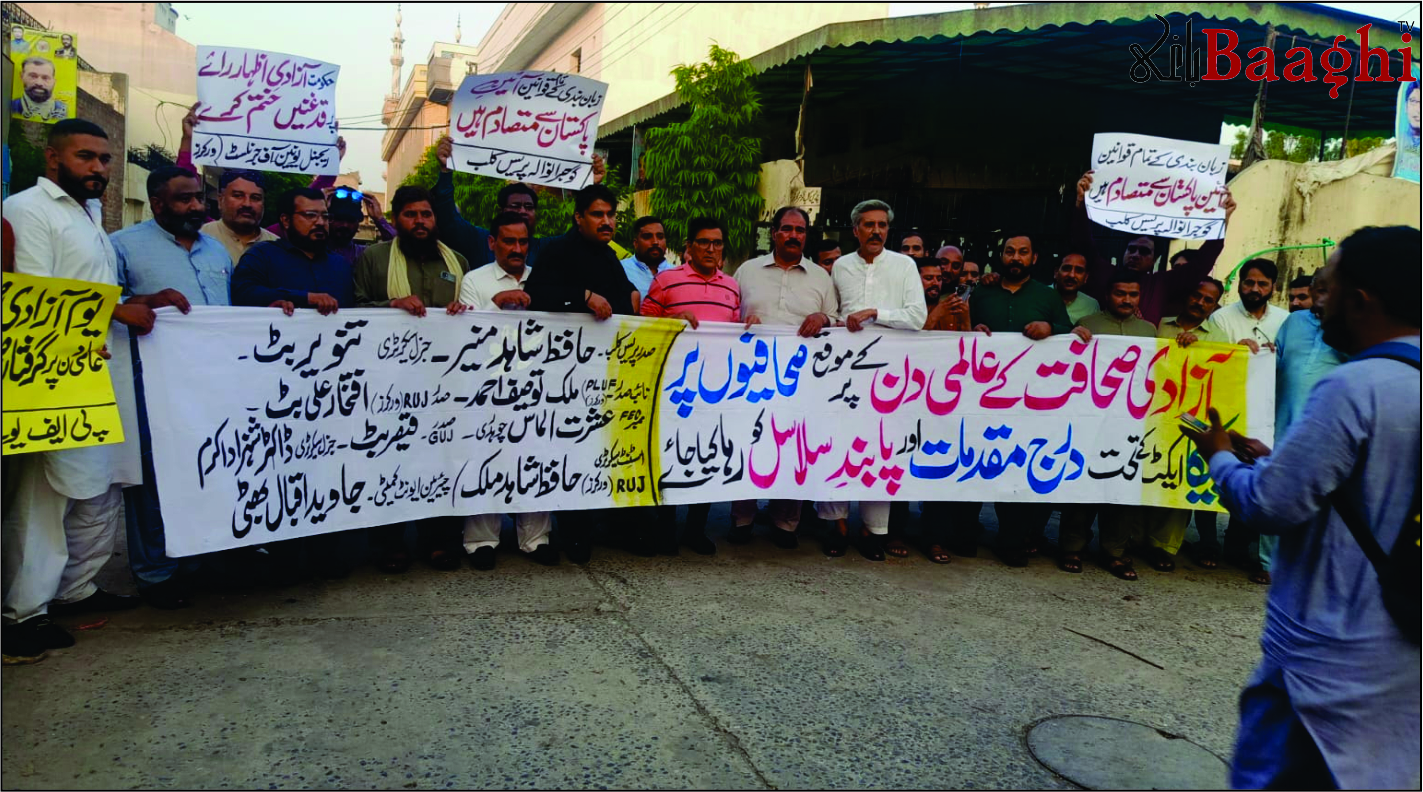 باغی Baaghi TV
حکومت آزادی اظہار رائے
پر قدغنیں ختم کرے
ریجنل یونین آف جرنلسٹ (ورکرز)
زبان بندی کے قوانین آئین
پاکستان سے متصادم ہیں
گوجرانوالہ پریس کلب
زبان بندی کے تمام قوانین
آئین پاکستان سے متصادم ہیں
گوجرانوالہ پریس کلب
یوم آزادی
عالمی دن پر گرفتار
پی ایف یو
آزادی صحافت کے عالمی دن کے موقع پر صحافیوں پر
پیکا ایکٹ کے تحت درج مقدمات اور پابند سلاسل کو رہا کیا جائے
صدر پریس کلب۔ حافظ شاہد منیر۔ جنرل سیکرٹری تنویر بٹ۔
نائب صدر PLUF (ورکرز) ملک توصیف احمد۔ صدر RUJ (ورکرز) افتخار علی بٹ
ممبر FEC عشرت الماس چوہدری۔ صدر RUJ۔ قیصر بٹ۔ جنرل سیکرٹری ڈاکٹر شہزاد اکرم
اسسٹنٹ سیکرٹری RUJ (ورکرز) حافظ شاہد ملک) چیئرمین ایونٹ کمیٹی۔ جاوید اقبال بھٹی